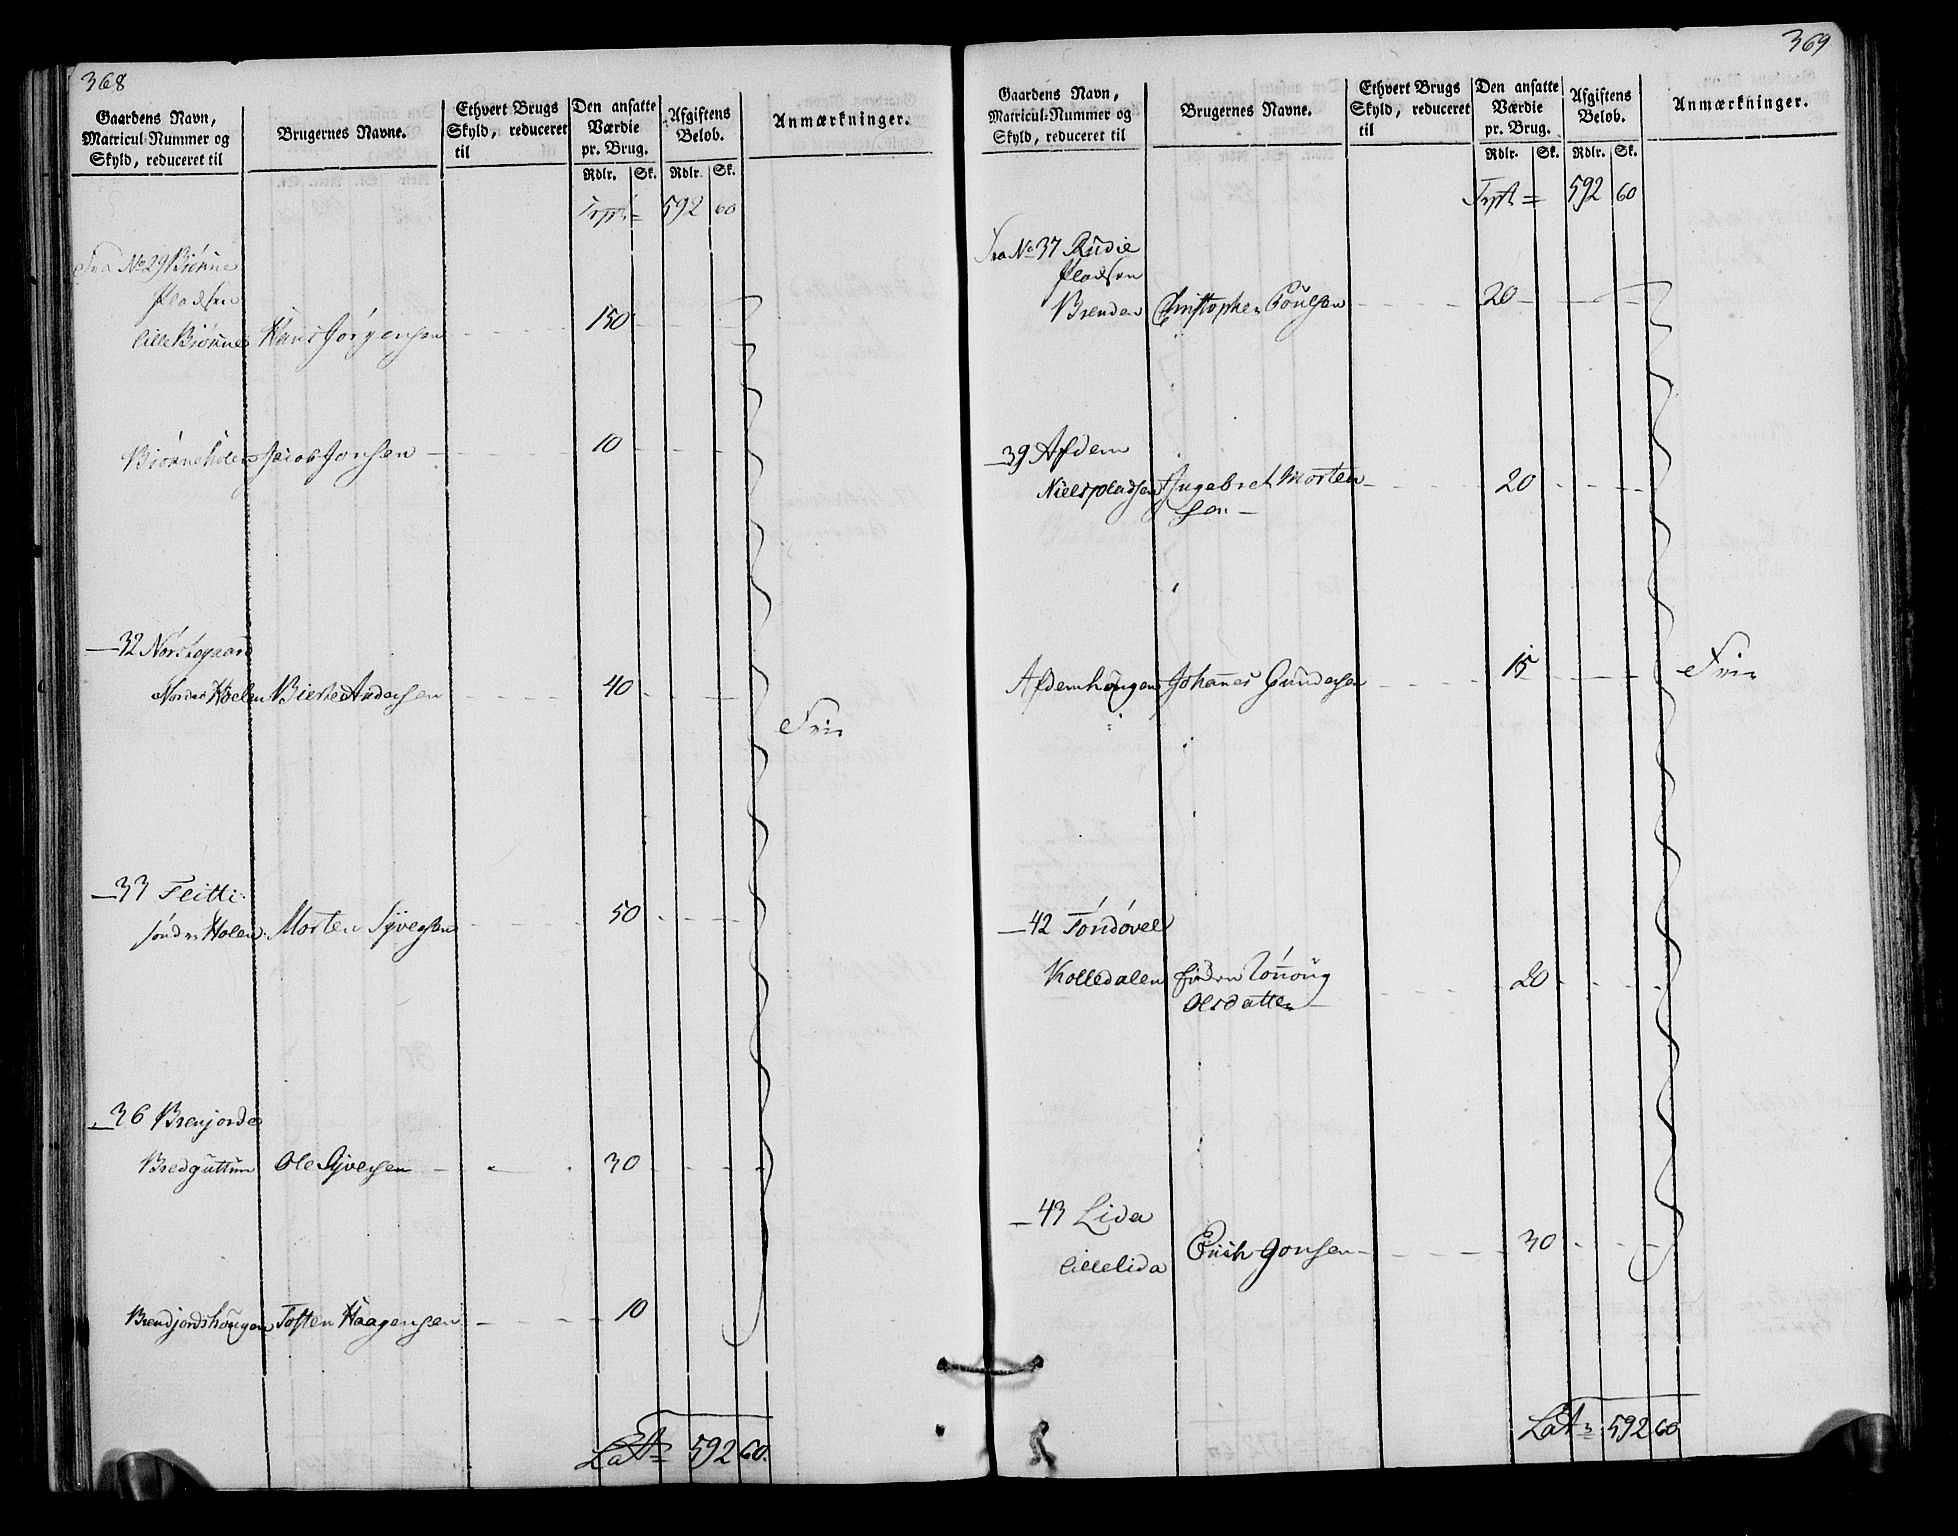 368
Gaardens Navn, Matricul-Nummer og Skyld, reduceret til
Brugernes Navne.
Ethvert Brugs Skyld, reduceret til
Den ansatte Værdie pr. Brug.
Afgiftens Beløb.
Anmærkninger.
Rdlr. Sk. Rdlr. Sk.
Trpt = 592 60
Fra No 29 Biønne
Pladsen
lille Biønne Hans Jørgensen 150
Biønneholen Jacob Jonsen 10
32 Nørstegaard
Nordre Hoelen Bierte Andersen 40
Frie
33 Fleitti
søndre Holen Morten Syversen 50
36 Brenjorde
Bredguttum Ole Syversen 30
Brendjordshougen Tosten Haagensen 10
Lat= 592 60.
369
Gaardens Navn, Matricul-Nummer og Skyld, reduceret til
Brugernes Navne.
Ethvert Brugs Skyld, reduceret til
Den ansatte Værdie pr. Brug.
Afgiftens Beløb.
Anmærkninger.
Rdlr. Sk. Rdlr. Sk.
Trpt = 592 60
Fra No 37 Rudie
Pladsen
Brenden Christopher Poulsen 20
39 Afdem
Nielspladsen Ingebret Morten
sen 20
Afdemhougen Johannes Gundersen 15 Frie
42 Tondøvel
Kolledalen 20
Olsdatter
43 Lida
lillelida Erich Jonsen 30
Lat= 592 60